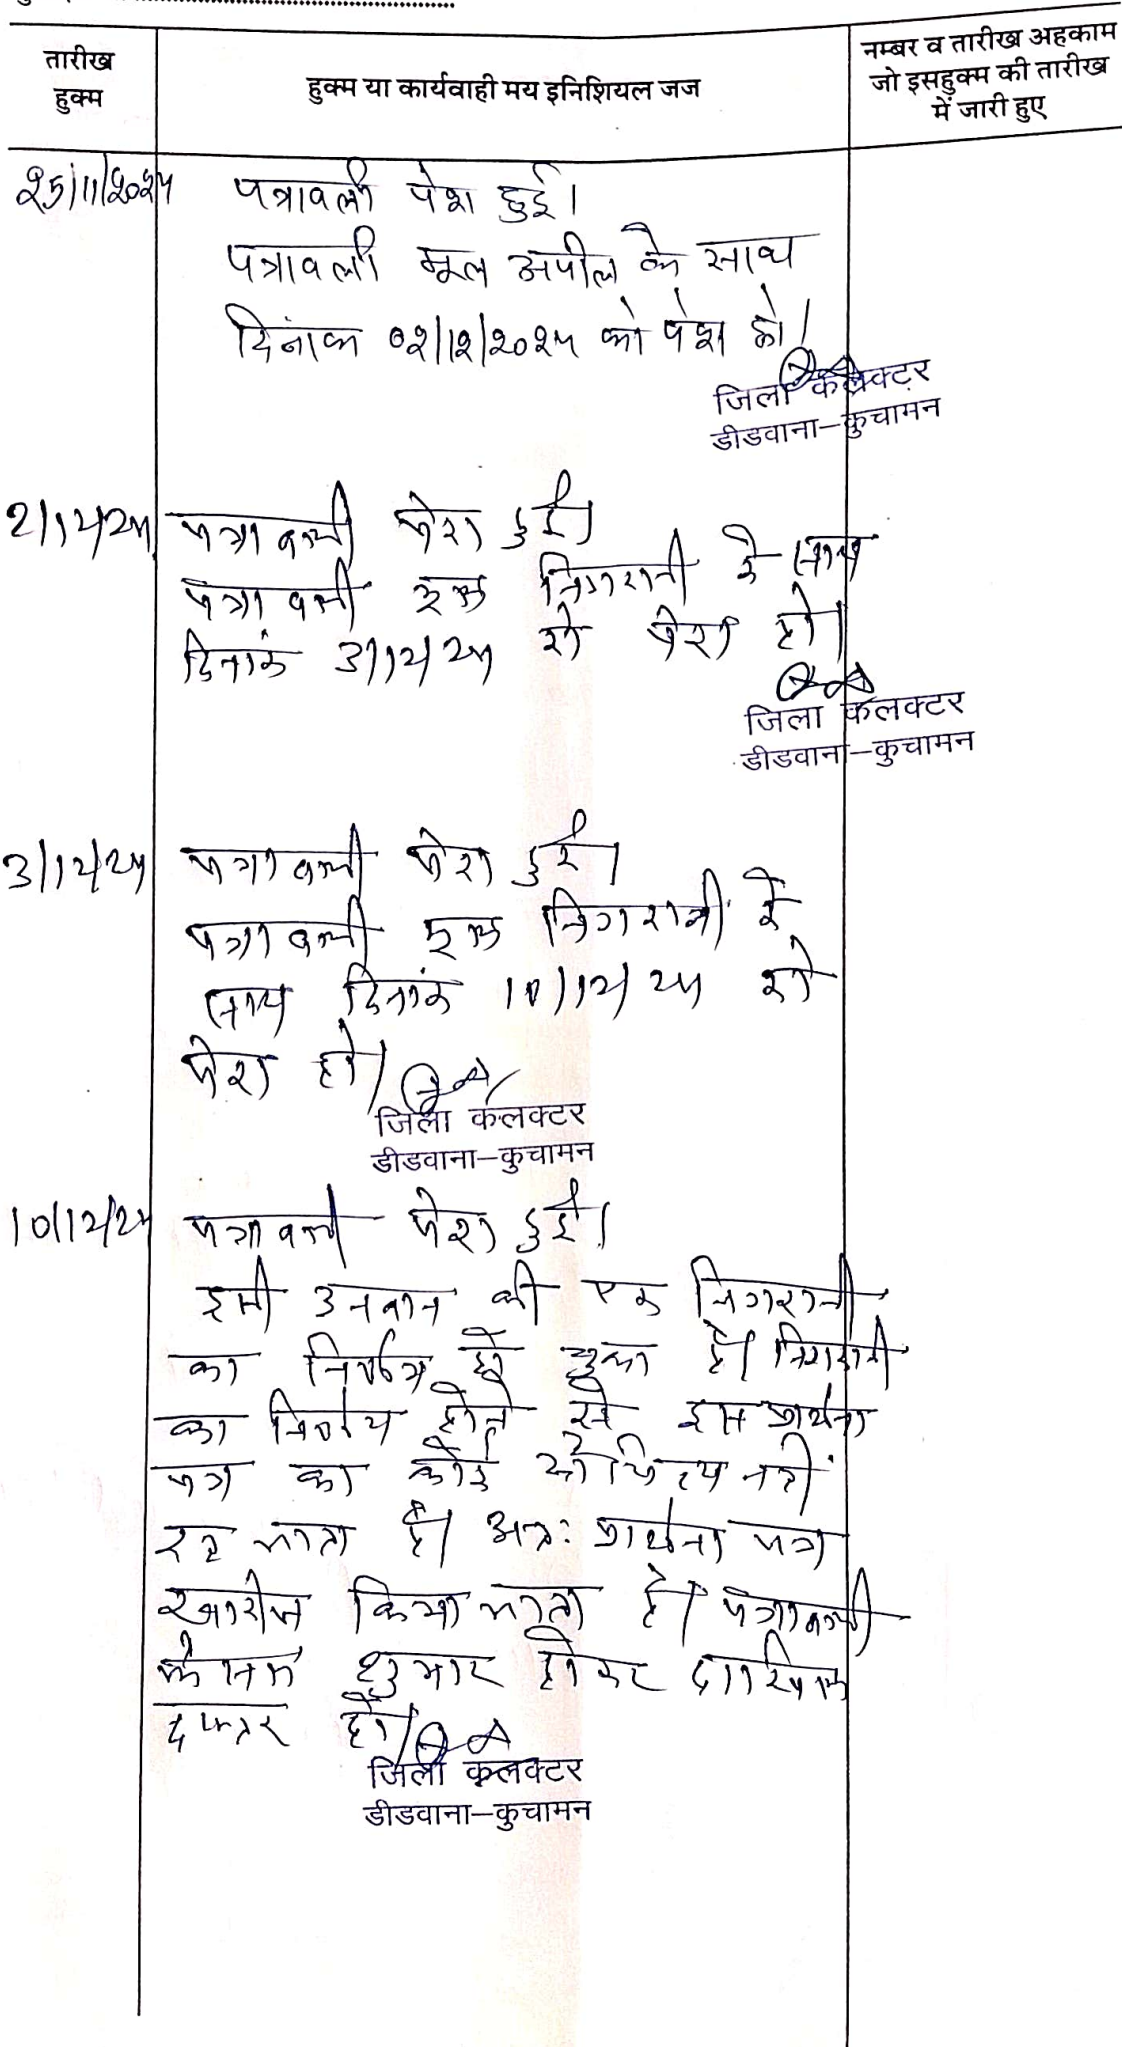 तारीख
हुक्म
हुक्म या कार्यवाही मय इनिशियल जज
नम्बर व तारीख अहकाम
जो इसहुक्म की तारीख
में जारी हुए
25/11/2024 पत्रावली पेश हुई।
पत्रावली मूल अपील के साथ
दिनांक 02/12/2024 को पेश हो।
जिला कलक्टर
डीडवाना–कुचामन
2/12/24 पत्रावली पेश हुई।
पत्रावली मूल निगरानी के साथ
दिनांक 3/12/24 को पेश हो।
जिला कलक्टर
डीडवाना–कुचामन
3/12/24 पत्रावली पेश हुई।
पत्रावली मूल निगरानी के
साथ दिनांक 10/12/24 को
पेश हो।
जिला कलक्टर
डीडवाना–कुचामन
10/12/24 पत्रावली पेश हुई।
इसी उनवान की एक निगरानी
का निर्णय हो चुका है। निगरानी
का निर्णय होने से इस प्रार्थना
पत्र का कोई औचित्य नहीं
रह जाता है। अतः प्रार्थना पत्र
खारीज किया जाता है। पत्रावली
फैसल शुमार होकर दाखिल
दफ्तर हो।
जिला कलक्टर
डीडवाना–कुचामन